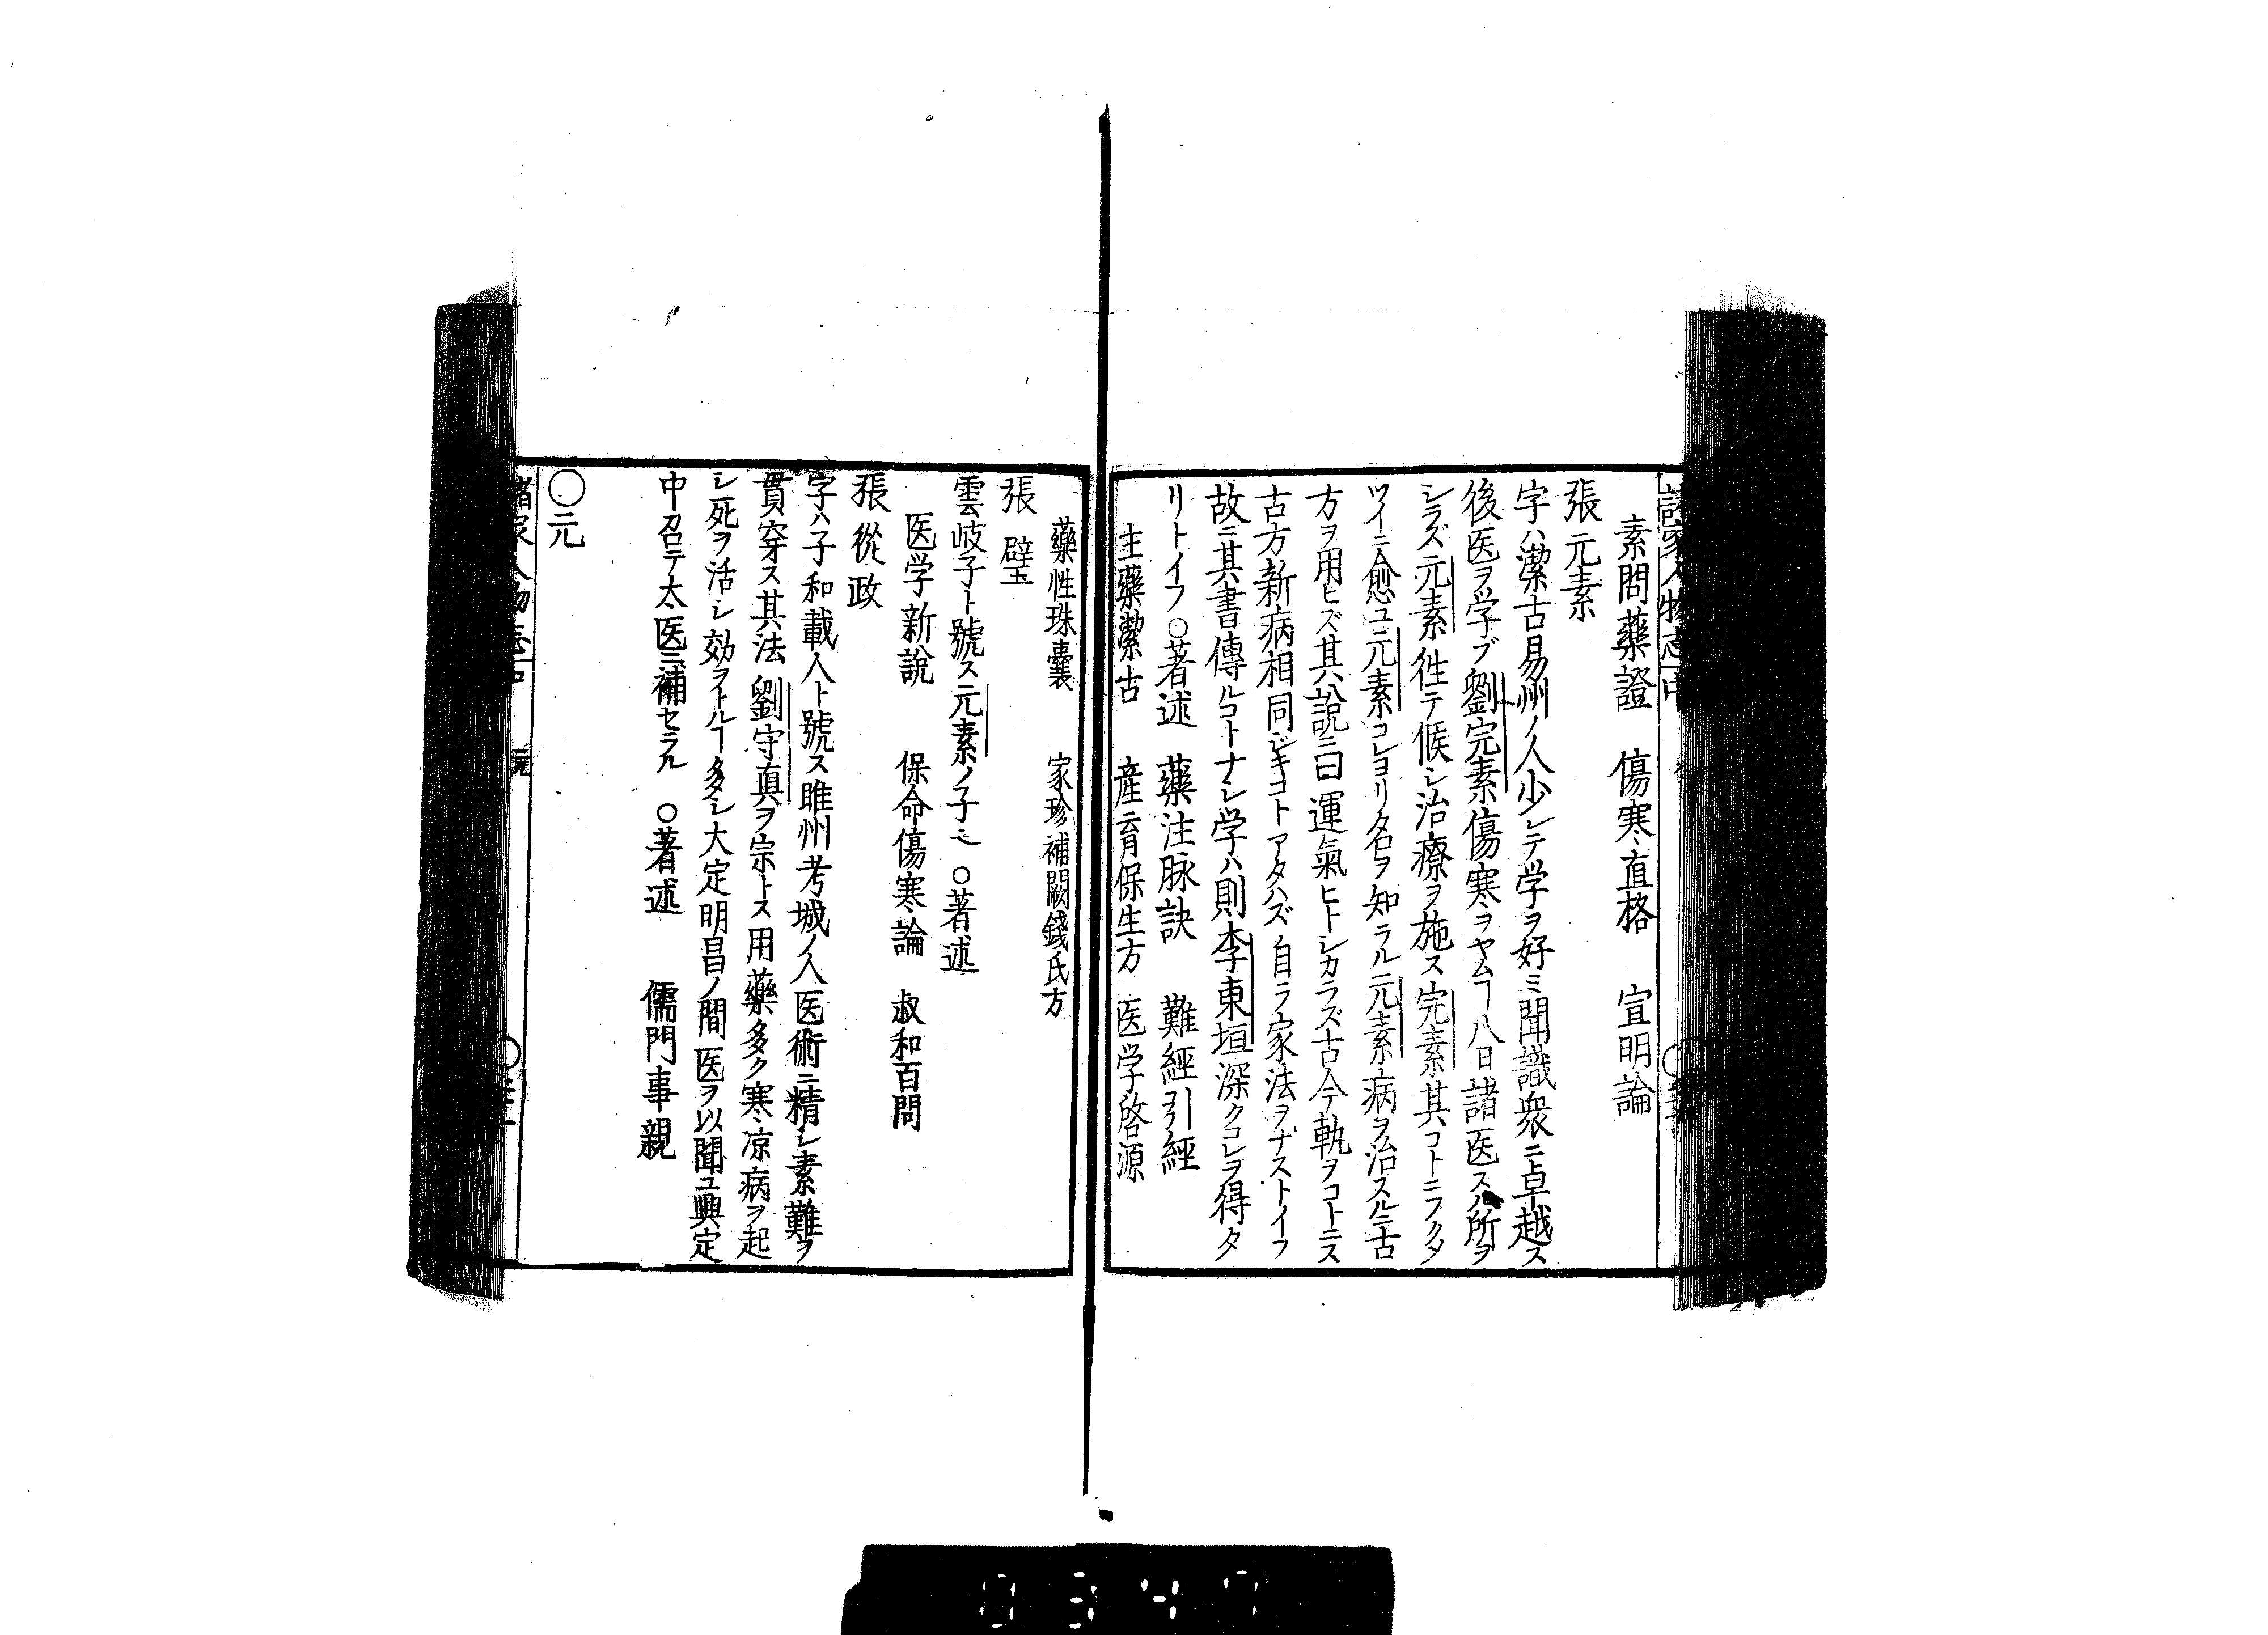 素問藥證　傷寒直格　宣明論
張元素
字ハ潔古易州ノ人少レテ学ヲ好ミ聞識衆ニ卓越ス
後医ヲ学ブ劉完素傷寒ヲヤムヿ八日諸医スル所ヲ
シラズ元素徃テ候シ治療ヲ施ス完素其コトニフクタ
ツイニ愈ユ元素コレヨリ名ヲ知ラル元素病ヲ治スルニ古
方ヲ用ヒズ其說ニ曰運氣ヒトシカラズ古今軌ヲコトニス
古方新病相同ジキコトアタハズ自ラ家法ヲナストイフ
故ニ其書傳ルコトナシ学ハ則李東垣深クコレヲ得タ
リトイフ○著述　藥注脉訣　難經引經
主藥潔古　産育保生方　医学啓源
藥性珠嚢　家珍補闕錢氏方
張璧
雲岐子ト號ス元素ノ子ニ○著述
医学新說　保命傷寒論　叔和百問
張從政
字ハ子和載人ト號ス睢州考城ノ人医術ニ精シ素難ヲ
貫穿ス其法劉守真ヲ宗トス用藥多ク寒凉病ヲ起
シ死ヲ活シ効ヲトルヿ多シ大定明昌ノ間医ヲ以聞ユ興定
中召テ太医ニ補セラル　○著述　儒門事親
○元
諸家人物志中　元